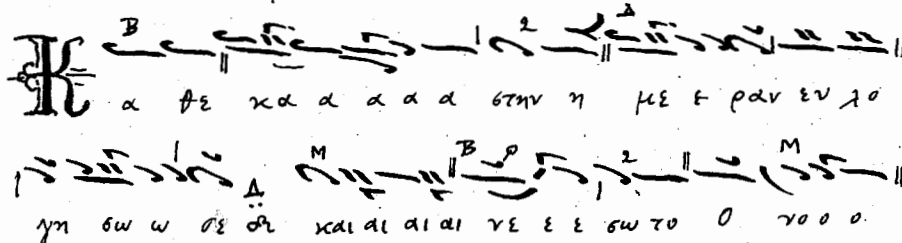 Κ α θε κα α α α α στην η με ε ραν ευ λο
γη σω ω σε και αι αι αι νε ε ε σω το ο νο ο ο